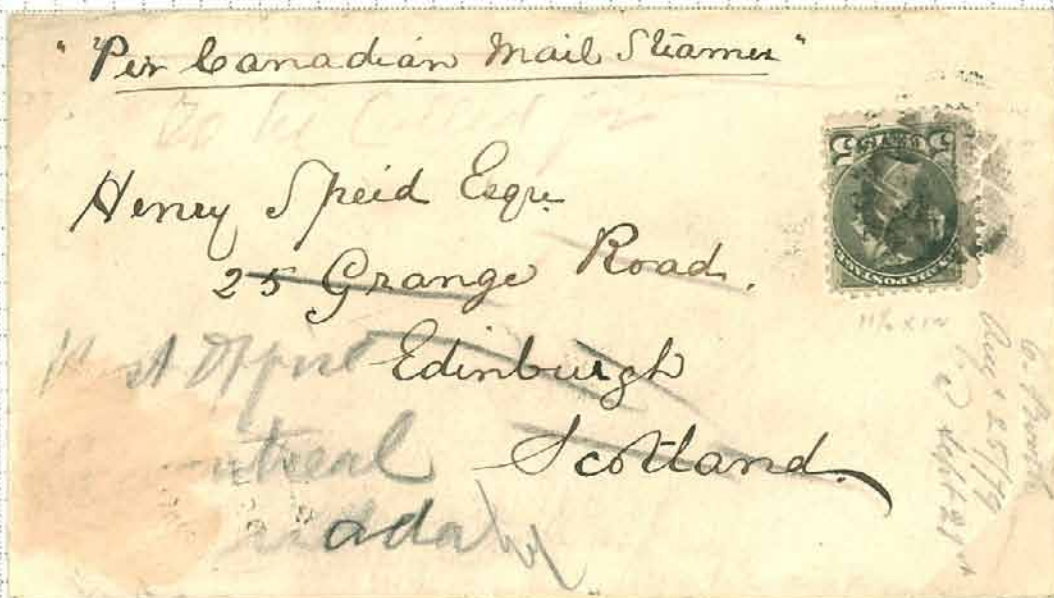 "Per Canadian Mail Steamer"
To be Called for
Henry Speid Esqre.
25 Grange Road.
Edinburgh
Scotland.
Post Office
ntreal
ada
5 5
11½ x 12